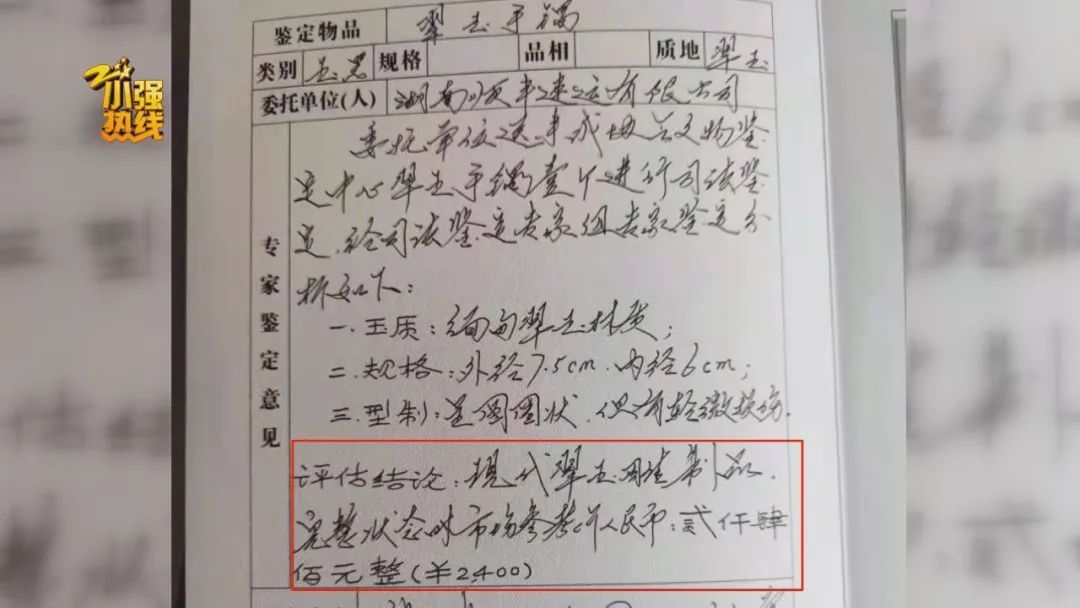 小强热线
鉴定物品 翠玉手镯
类别 玉器 规格 品相 质地 翠玉
委托单位(人) 湖南顺丰速运有限公司
专家鉴定意见
委托单位送来或妆文物鉴
定中心翠玉手镯壹个进行司法鉴
定,经司法鉴定专家组专家鉴定分
析如下:
一.玉质:缅甸翠玉材质;
二.规格:外径7.5cm.内径6cm;
三.型制:呈圆圈状.但有轻微损伤.
评估结论:现代翠玉制品.
完整状态时市场参考价人民币:贰仟肆
佰元整(¥2,400)